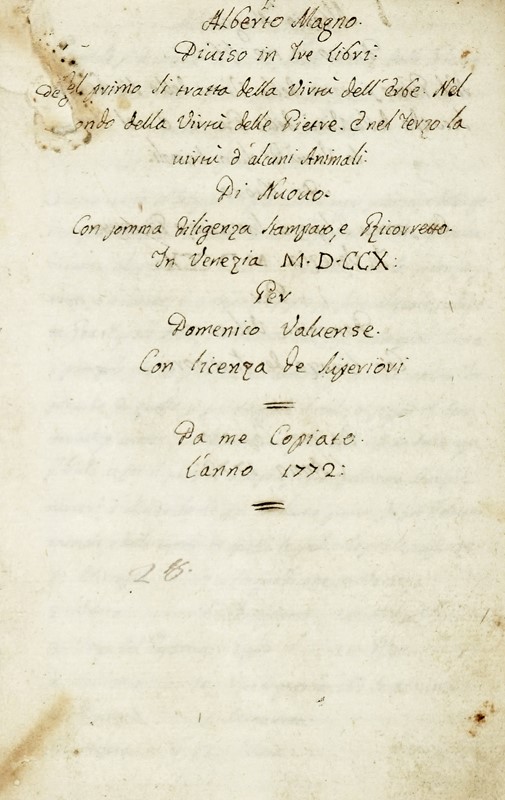 Alberto Magno.
Diviso in Tre Libri.
primo si tratta della Virtù dell'Erbe. Nel
ondo della Virtù delle Pietre. È nel Terzo la
virtù d'alcuni Animali.
Di Nuovo.
Con somma diligenza stampato, e Ricorretto.
In Venezia M·D·CCX:
Per
Domenico Valuense.
Con licenza de Superiori
Da me Copiato.
L'anno 1772: